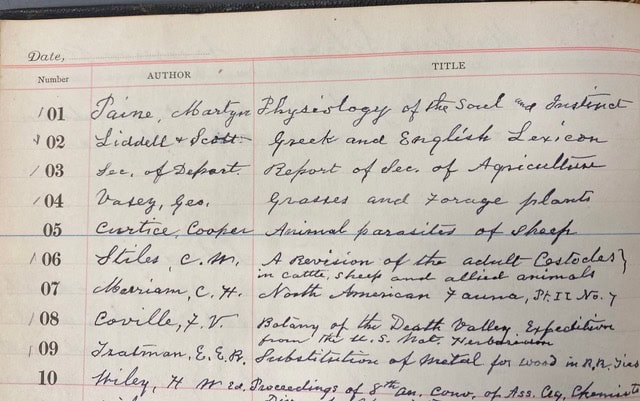 Date,
Number AUTHOR TITLE
/01 Paine, Martyn Physiology of the Soul and Instinct
02 Liddell & Scott Greek and English Lexicon
/03 Sec. of Depart. Report of Sec. of Agriculture
/04 Vasey, Geo. Grasses and Forage plants
05 Curtice, Cooper Animal parasites of Sheep
/06 Stiles, C. W. A Revision of the adult Cestodes }
in cattle, sheep and allied animals
07 Merriam, C. H. North American Fauna, Pt. II No. 7
/08 Coville, F. V. Botany of the Death Valley Expedition
from the U. S. Nat. Herbarium
/09 Tratman, E. E. R. Substitution of Metal for wood in R.R. Ties
10 Wiley, H W Ed. Proceedings of 8th An. Conv. of Ass. Ag. Chemists